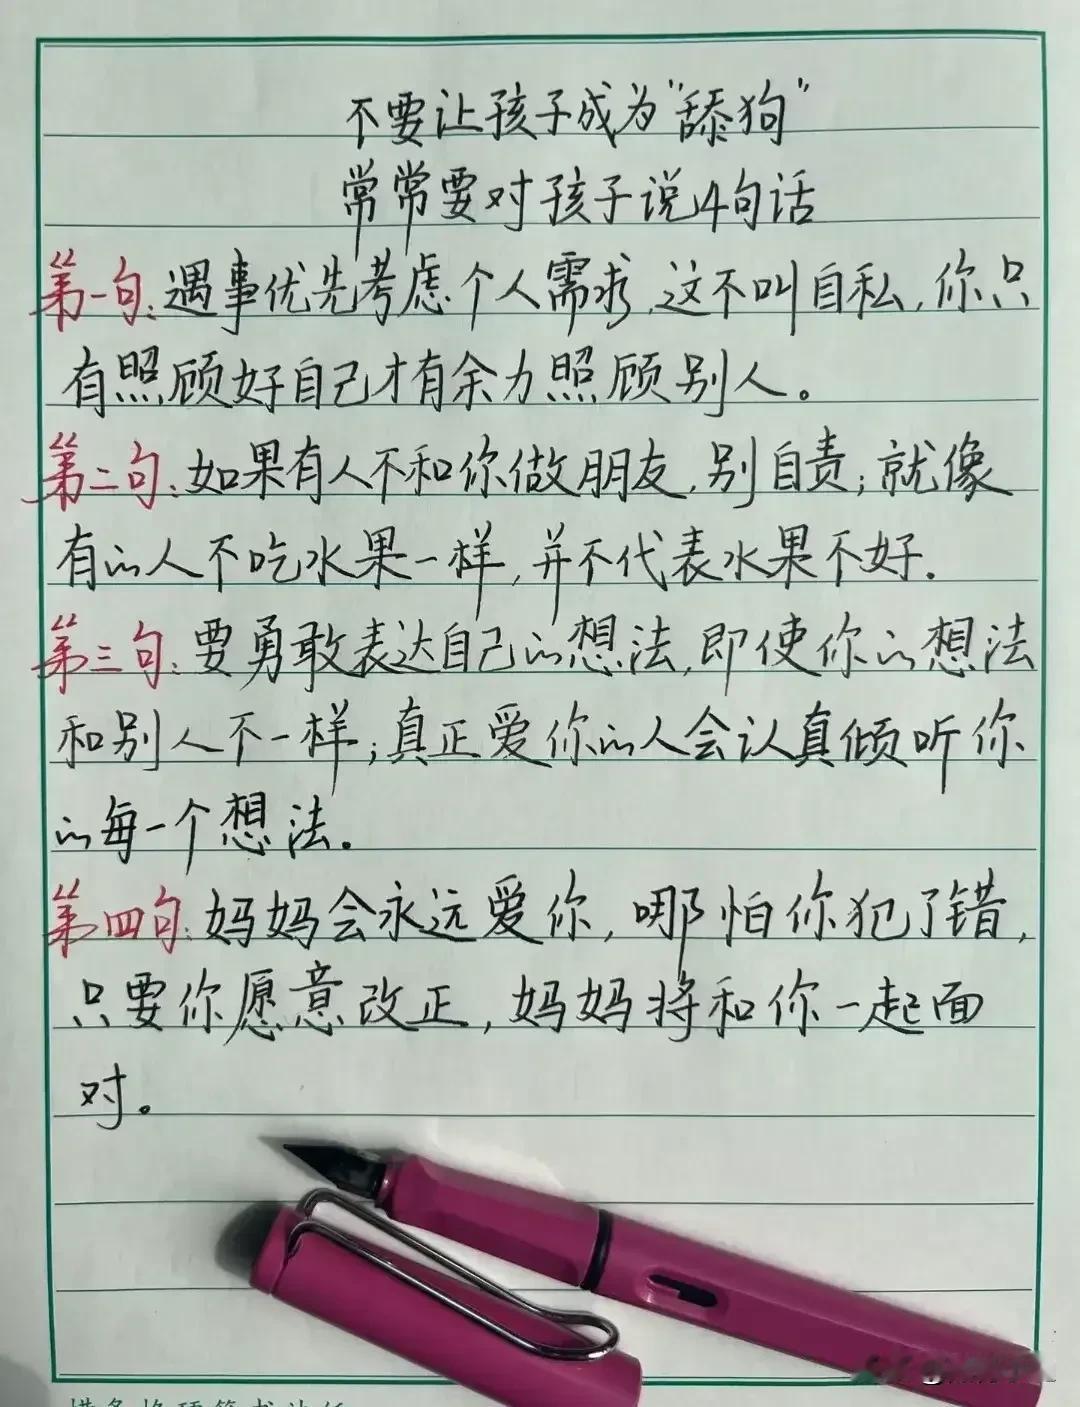 不要让孩子成为"舔狗"
常常要对孩子说4句话
第一句:遇事优先考虑个人需求,这不叫自私,你只
有照顾好自己才有余力照顾别人。
第二句:如果有人不和你做朋友,别自责;就像
有的人不吃水果一样,并不代表水果不好.
第三句:要勇敢表达自己的想法,即使你的想法
和别人不一样;真正爱你的人会认真倾听你
的每一个想法.
第四句:妈妈会永远爱你,哪怕你犯了错,
只要你愿意改正,妈妈将和你一起面
对。